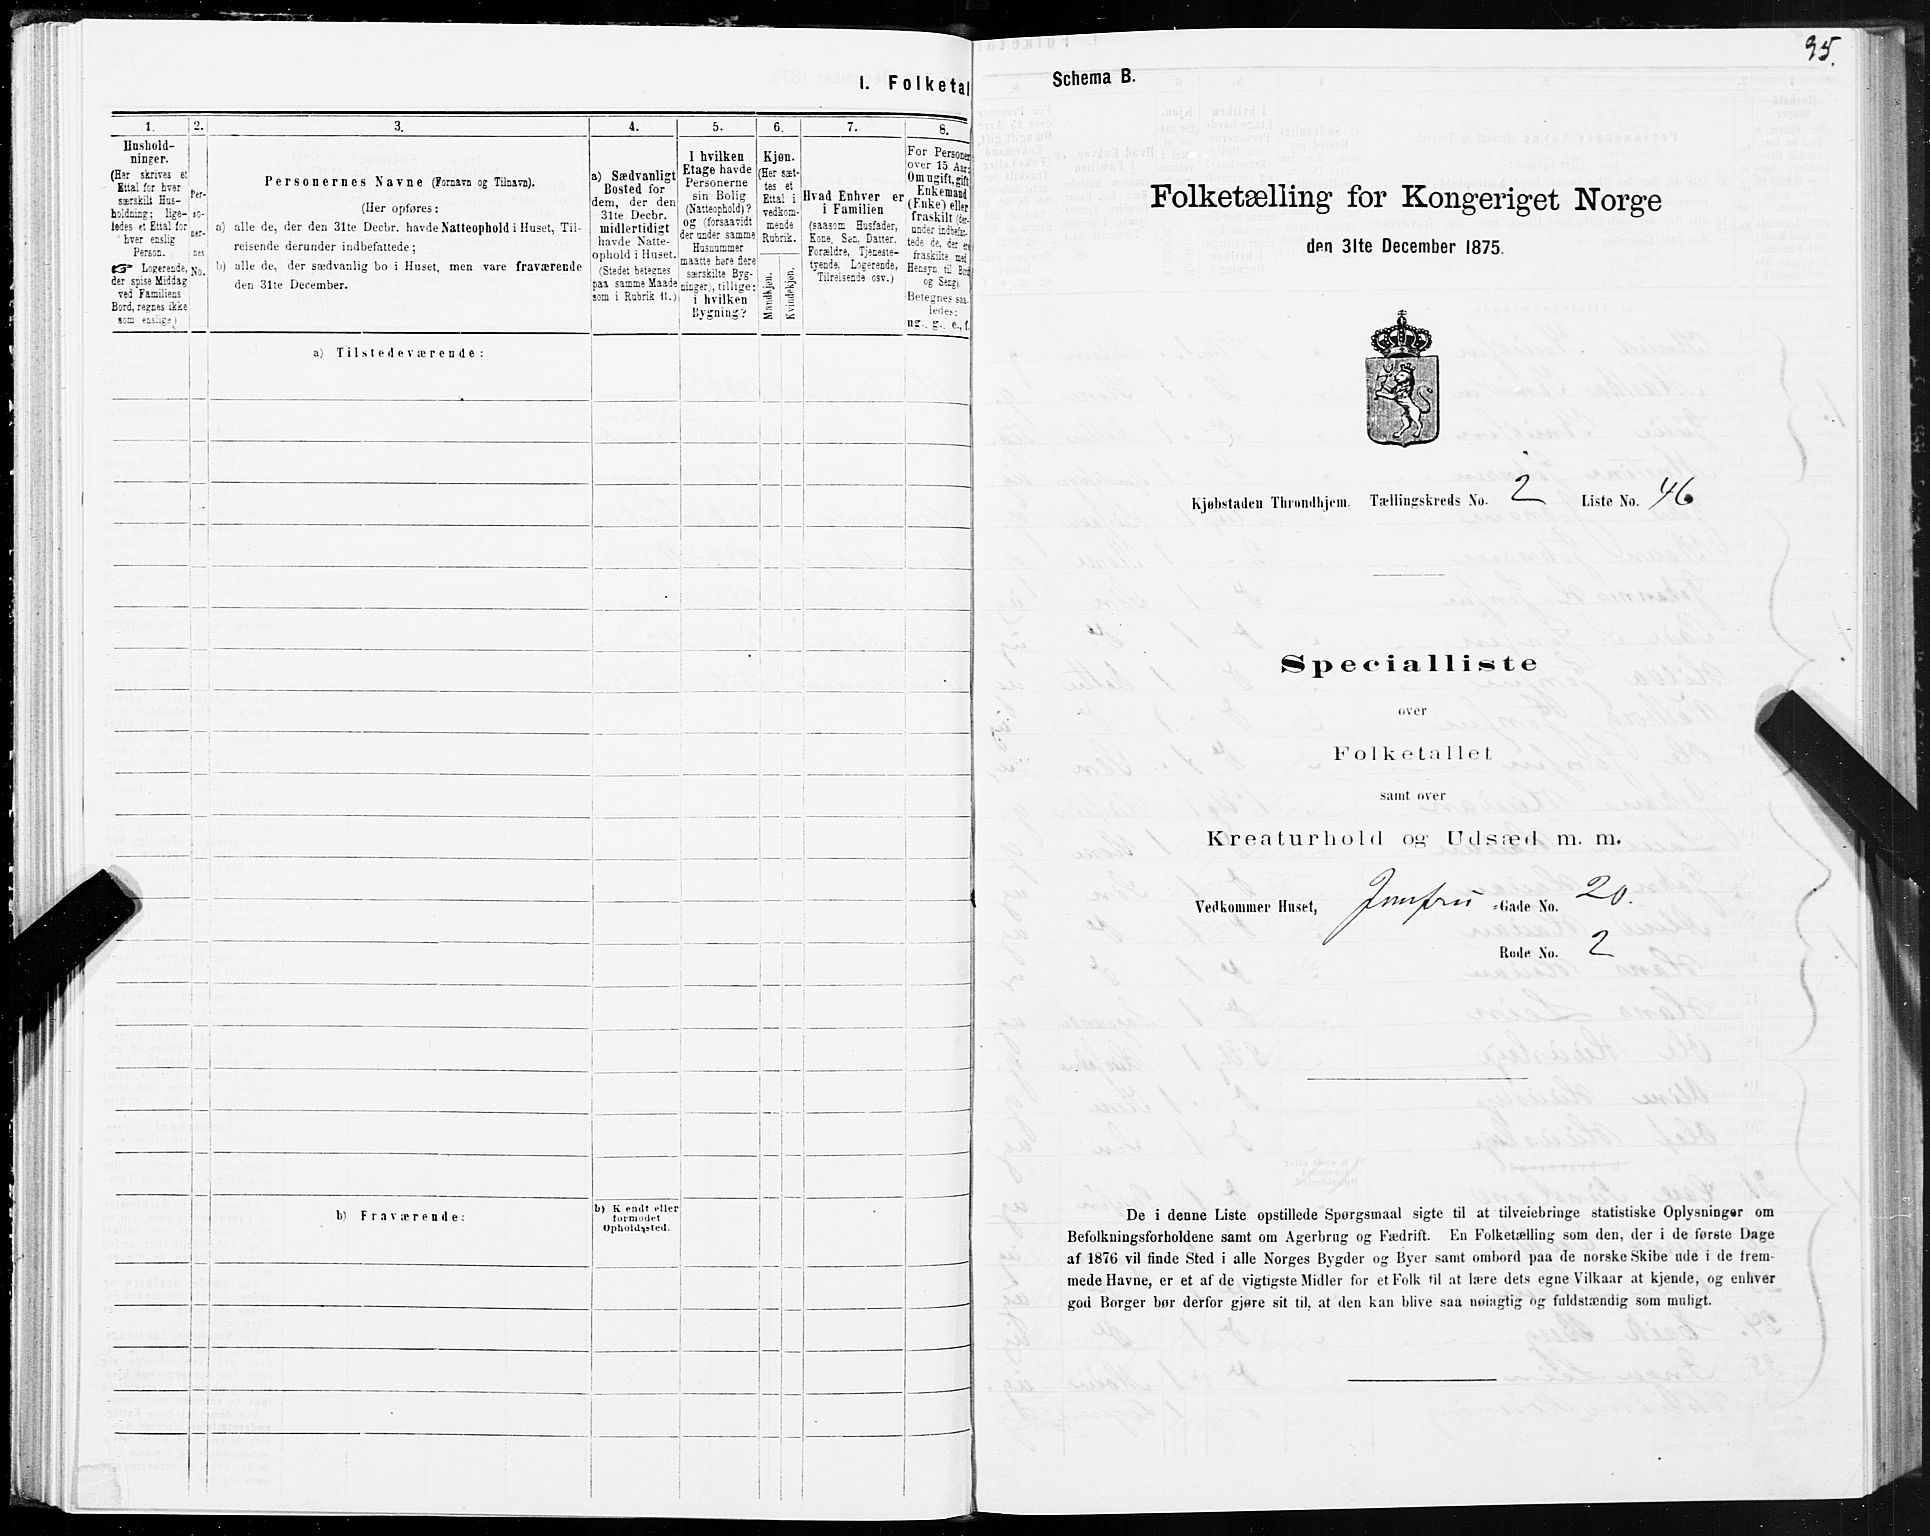 I. Folketal
1.
2.
3.
4.
5.
6.
7.
8.
Hushold-
ninger.
(Her skrives et
Ettal for hver
særskilt Hus-
holdning; lige-
ledes et Ettal for
hver enslig
Person.
☞ Logerende,
der spise Middag
ved Familiens
Bord, regnes ikke
som enslige.)
Per-
so-
ner-
nes
No.
Personernes Navne (Fornavn og Tilnavn).
(Her opføres:
a) alle de, der den 31te Decbr. havde Natteophold i Huset, Til-
reisende derunder indbefattede;
b) alle de, der sædvanlig bo i Huset, men vare fraværende
den 31te December.
a) Sædvanligt
Bosted for
dem, der den
31te Decbr.
midlertidigt
havde Natte-
ophold i Huset.
(Stedet betegnes
paa samme Maade
som i Rubrik 11.)
I hvilken
Etage havde
Personerne
sin Bolig
(Natteophold)?
og (forsaavidt
der under samme
Husnummer
maatte høre flere
særskilte Byg-
ninger), tillige:
i hvilken
Bygning?
Kjøn.
(Her sæt-
tes et
Ettal i
vedkom-
mende
Rubrik.
Mandkjøn.
Kvindekjøn.
Hvad Enhver er
i Familien
(saasom Husfader,
Kone, Søn, Datter,
Forældre, Tjeneste-
tyende, Logerende,
Tilreisende osv.)
For Personer
over 15 Aar:
Om ugift, gift,
Enkemand
(Enke) eller
fraskilt (der-
under indbefat-
tede de, der ere
fraskilte med
Hensyn til Bord
og Seng).
Betegnes saa-
ledes:
ug., g., e., f.
a) Tilstedeværende:
b) Fraværende:
b) Kjendt eller
formodet
Opholdssted.
95.
Schema B.
Folketælling for Kongeriget Norge
den 31te December 1875.
Kjøbstaden Throndhjem. Tællingskreds No. 2 Liste No. 46
Specialliste
over
Folketallet
samt over
Kreaturhold og Udsæd m. m.
Vedkommer Huset, Jomfru -Gade No. 20.
Rode No. 2
De i denne Liste opstillede Spørgsmaal sigte til at tilveiebringe statistiske Oplysninger om
Befolkningsforholdene samt om Agerbrug og Fædrift. En Folketælling som den, der i de første Dage
af 1876 vil finde Sted i alle Norges Bygder og Byer samt ombord paa de norske Skibe ude i de frem-
mede Havne, er et af de vigtigste Midler for et Folk til at lære dets egne Vilkaar at kjende, og enhver
god Borger bør derfor gjøre sit til, at den kan blive saa nøiagtig og fuldstændig som muligt.